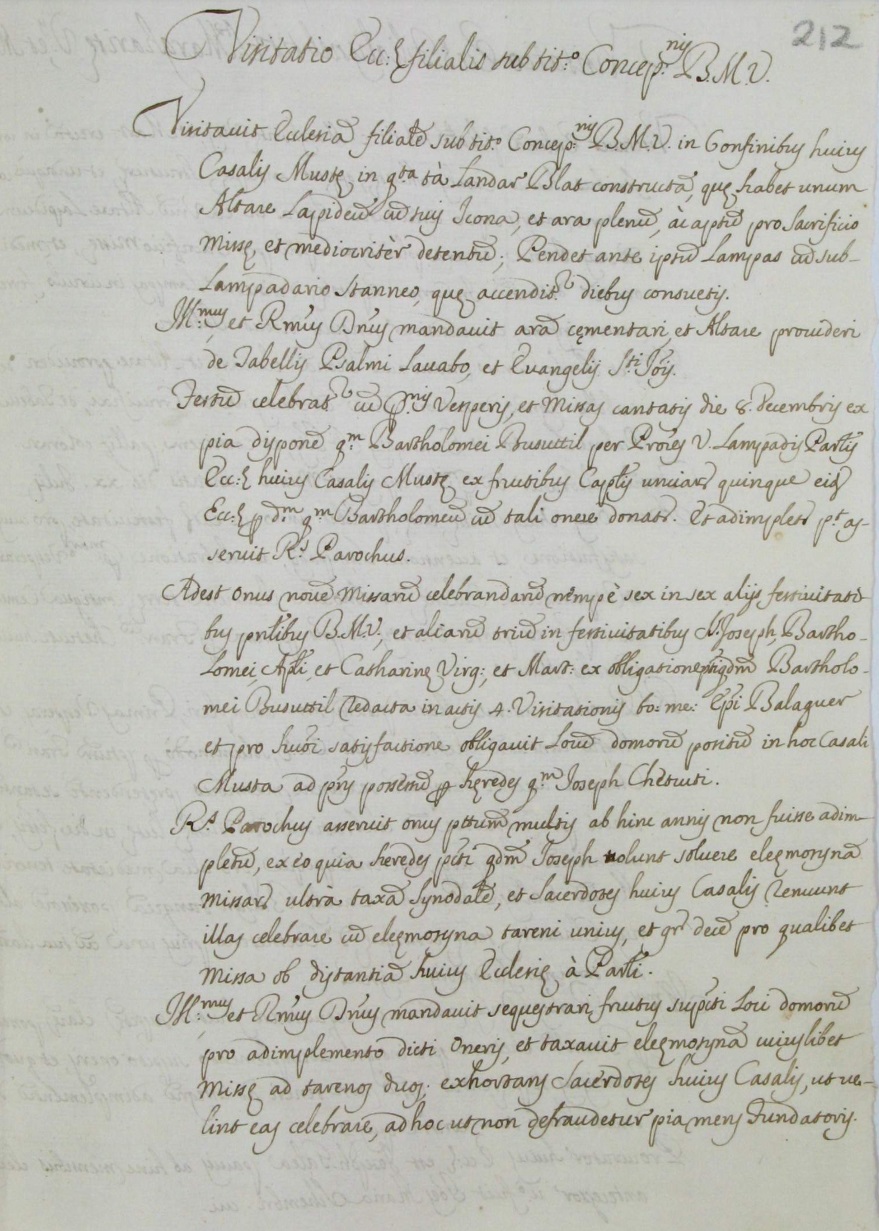 212
Visitatio Ecc:æ filialis sub tit.º Concep.nis B.M.V.
Visitavit Ecclesiã filialẽ sub tit.º Concep.nis B.M.V. in Confinibus huius
Casalis Mustę in q.ta tà Landar Blat constructã, quę habet unum
Altare Lapideũ cũ suis Icona, et ara plenũ, àc aptũ pro Sacrificio
Missę, et mediocritèr detentũ; Pendet ante ipsũ Lampas cũ sub-
Lampadario Stanneo, quę accendit.r diebus consuetis.
Ill.mus et Rm̃us Dñus mandavit arã cęmentari, et Altare provideri
de Tabellis Psalmi Lavabo, et Evangelij S.ti Joĩs.
Festũ celebrat.r cũ p.mis Vesperis, et Missa cantatis die 8. Decembris ex
pia dispoñe q.m Bartholomei Busuttil per Proĩes V. Lampadis Parlis
Ecc:æ huius Casalis Mustę ex fructibus Caplis unciarũ quinque eid.
Ecc:æ p d.m q.m Bartholomeũ cũ tali onere donatr. Et adimpletr p.t as-
seruit R.s Parochus.
Adest onus novẽ Missarũ celebrandarũ nẽmpè sex in sex alijs festivitati-
bus pnlibus B.M.V., et aliarũ triũ in festivitatibus S. Joseph, Bartho-
lomei Apli, et Catharinę Virg:, et Mart: ex obligatione qd̃m Bartholo-
mei Busuttil redacta in actis 4. Visitationis bo: me: Epi Balaguer
et pro huõi satisfactione obligavit Locũ domorũ positũ in hoc Casali
Musta ad pñs possessũ p hęredes q.m Joseph Chetcuti.
R.s Parochus asseruit onus pttum multis ab hinc annis non fuisse adim-
pletũ, ex eo quia heredes pcti qd̃m Joseph nolunt solvere eleęmosynã
Missarũ ultrà taxã Synodalẽ, et Sacerdotes huius Casalis renuunt
illas celebrare cũ elęmosyna tareni unius, et gr: decẽ pro qualibet
Missa ob distantiã huius Ecclesię à Parli.
Ill.mus et Rm̃us Dñus mandavit sequestrari fructus supcti Loci domorũ
pro adimplemento dicti Oneris, et taxavit elęmosynã cuiuslibet
Missę ad tarenos duos; exhortans Sacerdotes huius Casalis, ut ve-
lint eas celebrare, ad hoc ut non defraudetur pia mens Fundatoris.